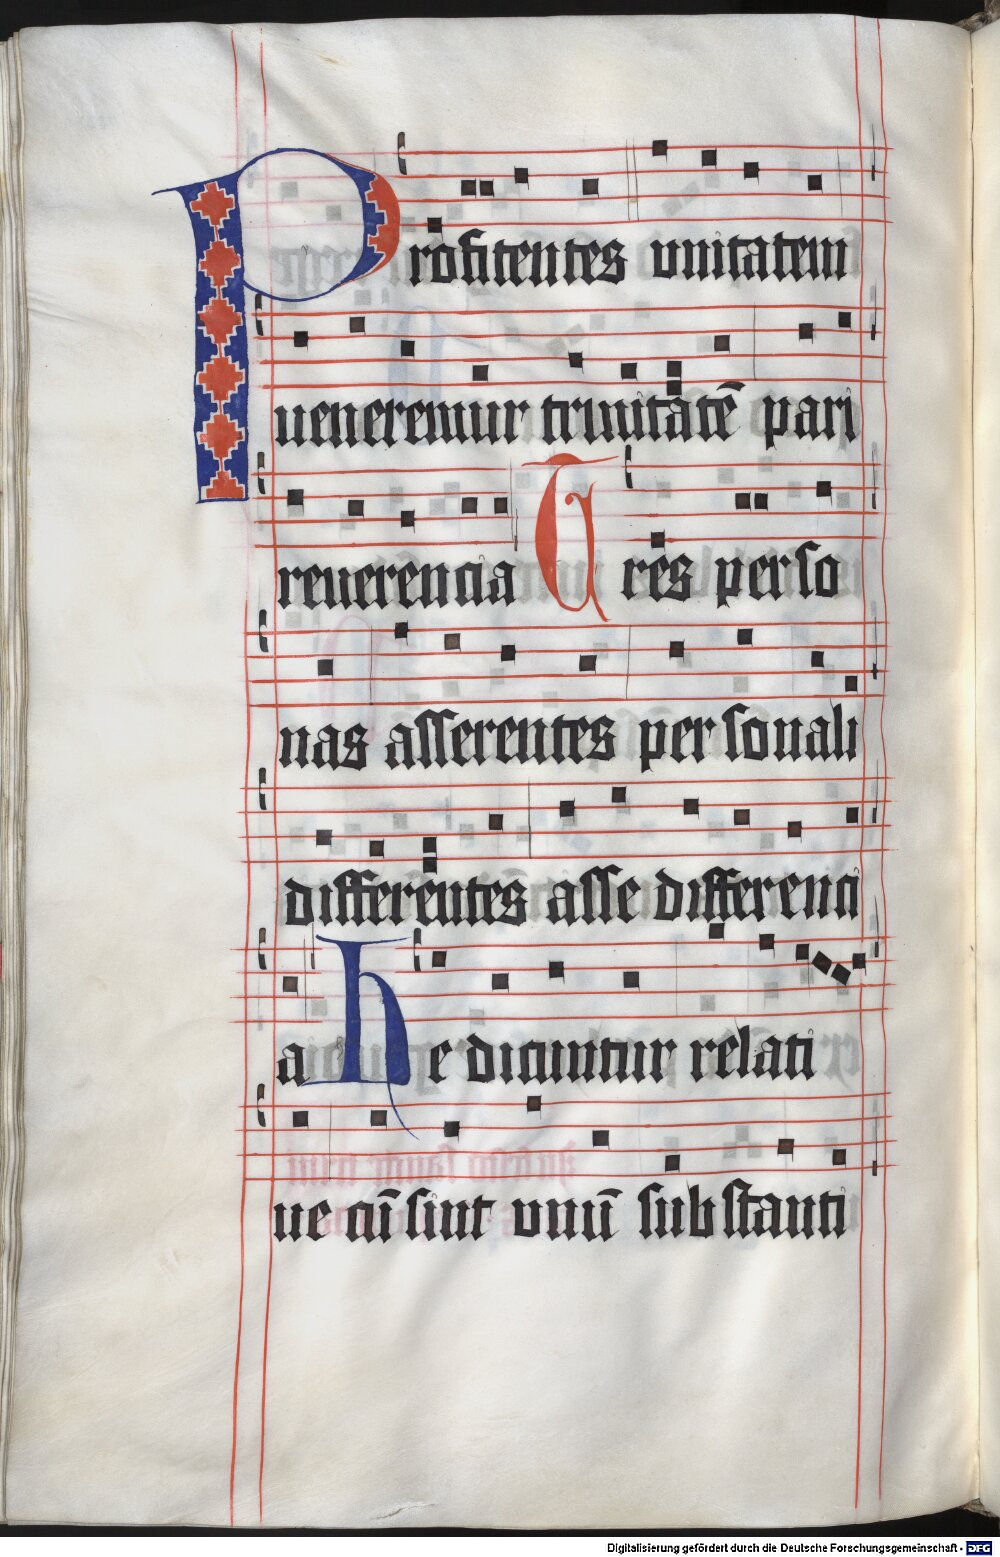 Profitentes vnitatem
ueneremur trinitatē pari
reuerencia Tres perso
nas asserentes personali
differentes asse differenci
a he dicuntur relati
ue cū sint vnū substanti
Digitalisierung gefördert durch die Deutsche Forschungsgemeinschaft - DFG